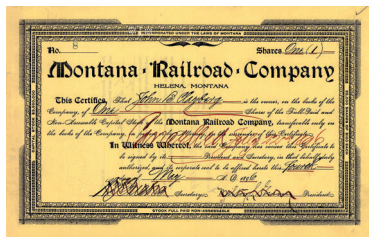 INCORPORATED UNDER THE LAWS OF MONTANA
No. 8 Shares One (1)
Montana Railroad Company
HELENA, MONTANA
This Certifies, That John B. is the owner, on the books of the
Company, of One Shares of the Full Paid and
Non-Assessable Capital Stock of the Montana Railroad Company, transferable only on
the books of the Company, in of this Certificate.
In Witness Whereof, the said Company has caused this Certificate to
be signed by its President and Secretary, and
authorized, and its corporate seal to be affixed hereto this fourth
of May A.D. 1896
Secretary. President.
STOCK FULL PAID NON-ASSESSABLE